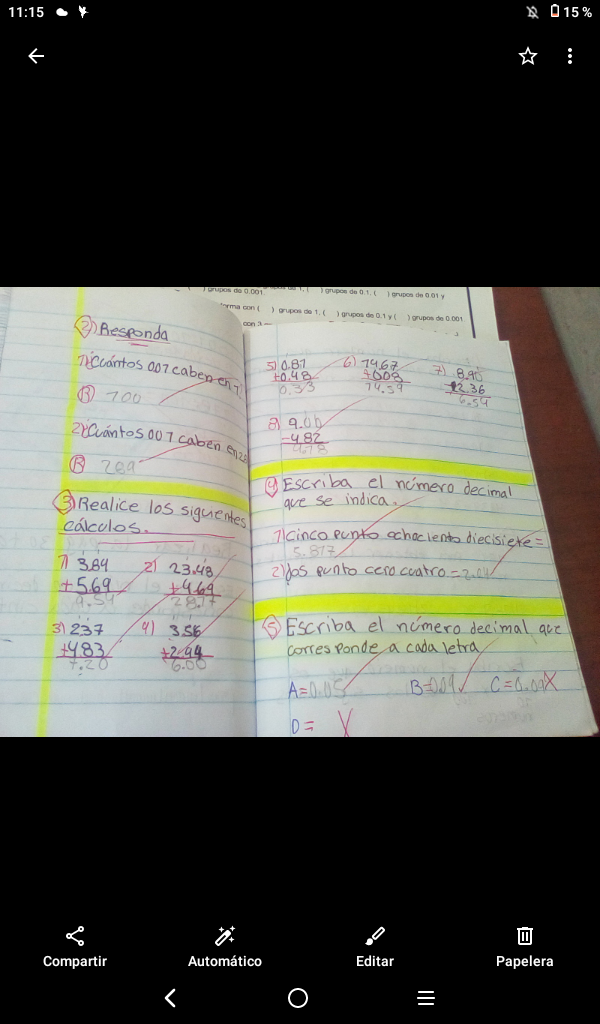 11:15
15 %
) grupos de 0.001.
grupos de 1, ( ) grupos de 0.1, ( ) grupos de 0.01 y
forma con ( ) grupos de 1, ( ) grupos de 0.1 y ( ) grupos de 0.001
con 3
2) Responda
1) Cuántos 001 caben en 1.
R 100
2) Cuántos 001 caben en
R 289
3 Realice los siguientes
cálculos.
1) 3.84
+ 5.69
9.54
2) 23.48
+ 4.69
28.17
3) 2.37
+4.83
7.20
4) 3.56
+2.44
6.00
5) 0.81
+0.48
0.33
6) 74.67
+008
74.59
7) 8.90
2.36
6.54
8) 9.00
-4.82
4.18
4 Escriba el número decimal
que se indica.
1) cinco punto ochociento diecisiete =
5.817
2) dos punto cero cuatro = 2.04
5 Escriba el número decimal que
corresponde a cada letra
A = 0.05 B = 0.09 C = 0.01 X
D = X
Compartir
Automático
Editar
Papelera